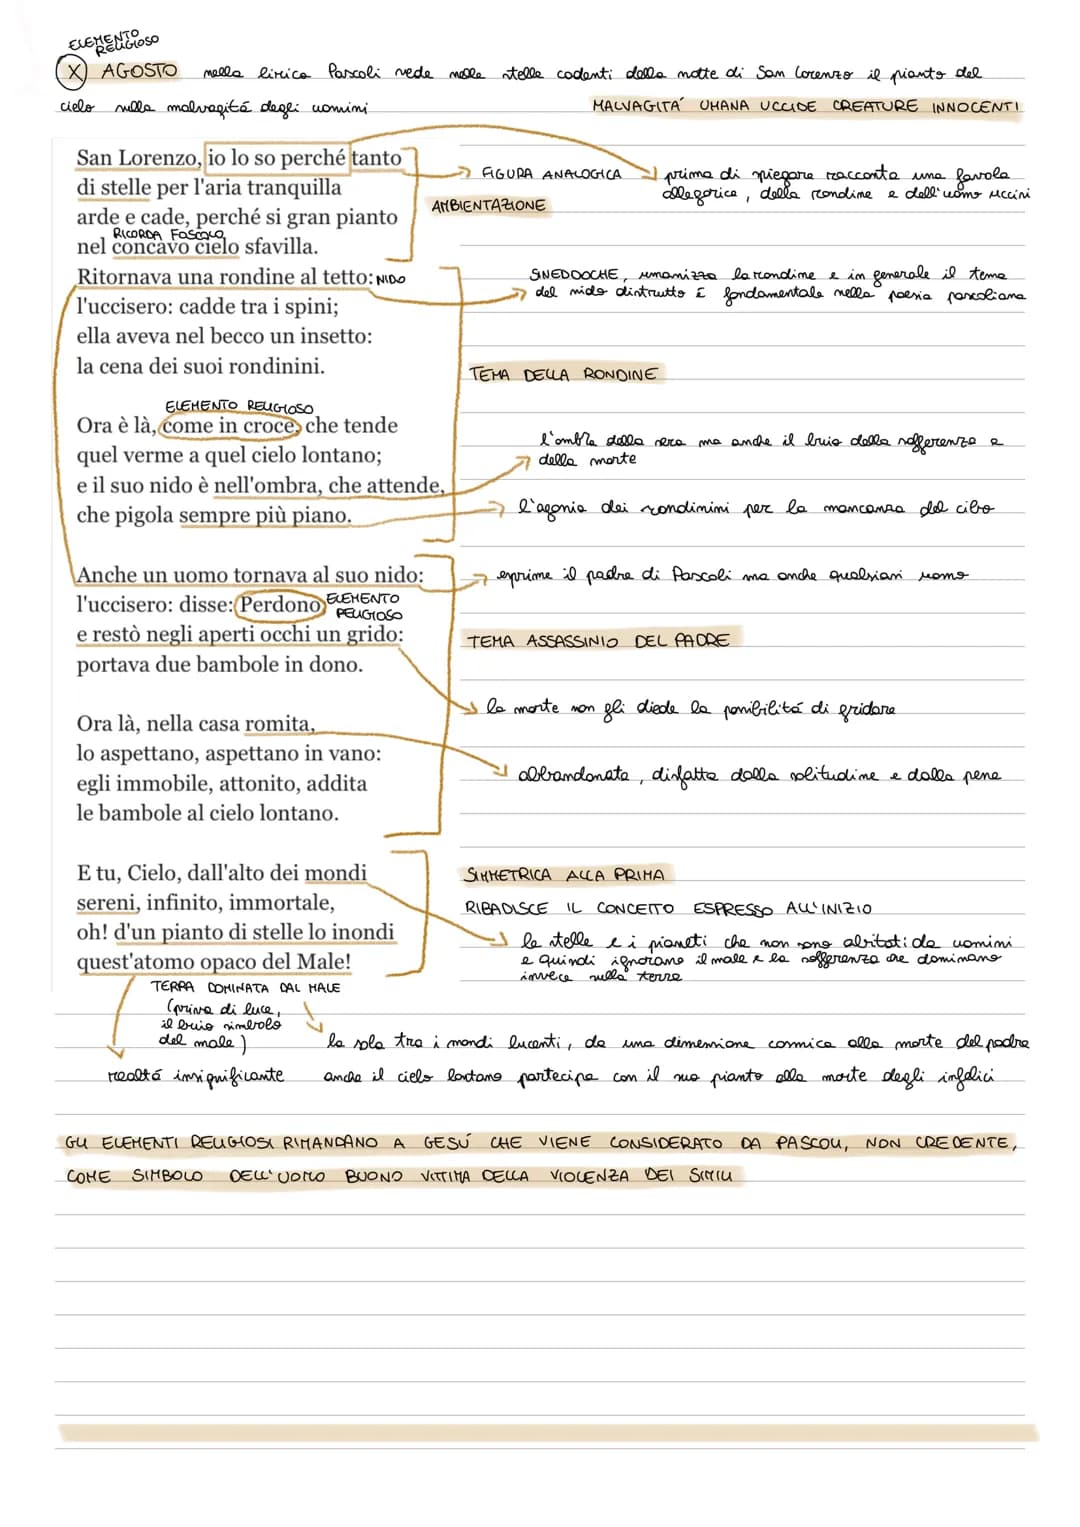 ELEMENTO
RELIGIOSO
X AGOSTO nella lirica Pascoli vede nelle stelle cadenti della notte di San Lorenzo il pianto del
cielo sulla malvagitá degli uomini
MALVAGITA' UMANA UCCIDE CREATURE INNOCENTI
San Lorenzo, io lo so perché tanto
di stelle per l'aria tranquilla
arde e cade, perché si gran pianto
RICORDA FOSCOLO
nel concavo cielo sfavilla.
FIGURA ANALOGICA
AMBIENTAZIONE
prima di spiegare racconta una favola
allegorica, della rondine e dell'uomo uccisi
Ritornava una rondine al tetto: NIDO
l'uccisero: cadde tra i spini;
ella aveva nel becco un insetto:
la cena dei suoi rondinini.
SINEDDOCHE, umanizza la rondine e in generale il tema
del nido distrutto É fondamentale nella poesia pascoliana
TEMA DELLA RONDINE
ELEMENTO RELIGIOSO
Ora è là, come in croce, che tende
quel verme a quel cielo lontano;
e il suo nido è nell'ombra, che attende,
che pigola sempre più piano.
l'ombra della sera ma anche il buio della sofferenza e
della morte
l'agonia dei rondinini per la mancanza del cibo
Anche un uomo tornava al suo nido:
l'uccisero: disse: Perdono ELEMENTO
RELIGIOSO
e restò negli aperti occhi un grido:
portava due bambole in dono.
esprime il padre di Pascoli ma anche qualsiasi uomo
TEMA ASSASSINIO DEL PADRE
la morte non gli diede la possibilitá di gridare
Ora là, nella casa romita,
lo aspettano, aspettano in vano:
egli immobile, attonito, addita
le bambole al cielo lontano.
abbandonata, disfatta dalla solitudine e dalla pena
E tu, Cielo, dall'alto dei mondi
sereni, infinito, immortale,
oh! d'un pianto di stelle lo inondi
quest'atomo opaco del Male!
SIMMETRICA ALLA PRIMA
RIBADISCE IL CONCETTO ESPRESSO ALL'INIZIO
le stelle e i pianeti che non sono abitati da uomini
e quindi ignorano il male e la sofferenza che dominano
invece sulla terra
TERRA DOMINATA DAL MALE
(priva di luce,
il buio simbolo
del male)
la sola tra i mondi lucenti, da una dimensione cosmica alla morte del padre
realtá insignificante
anche il cielo lontano partecipa con il suo pianto alla morte degli infelici
GLI ELEMENTI RELIGIOSI RIMANDANO A GESÚ CHE VIENE CONSIDERATO DA PASCOLI, NON CREDENTE,
COME SIMBOLO DELL'UOMO BUONO VITTIMA DELLA VIOLENZA DEI SIMILI